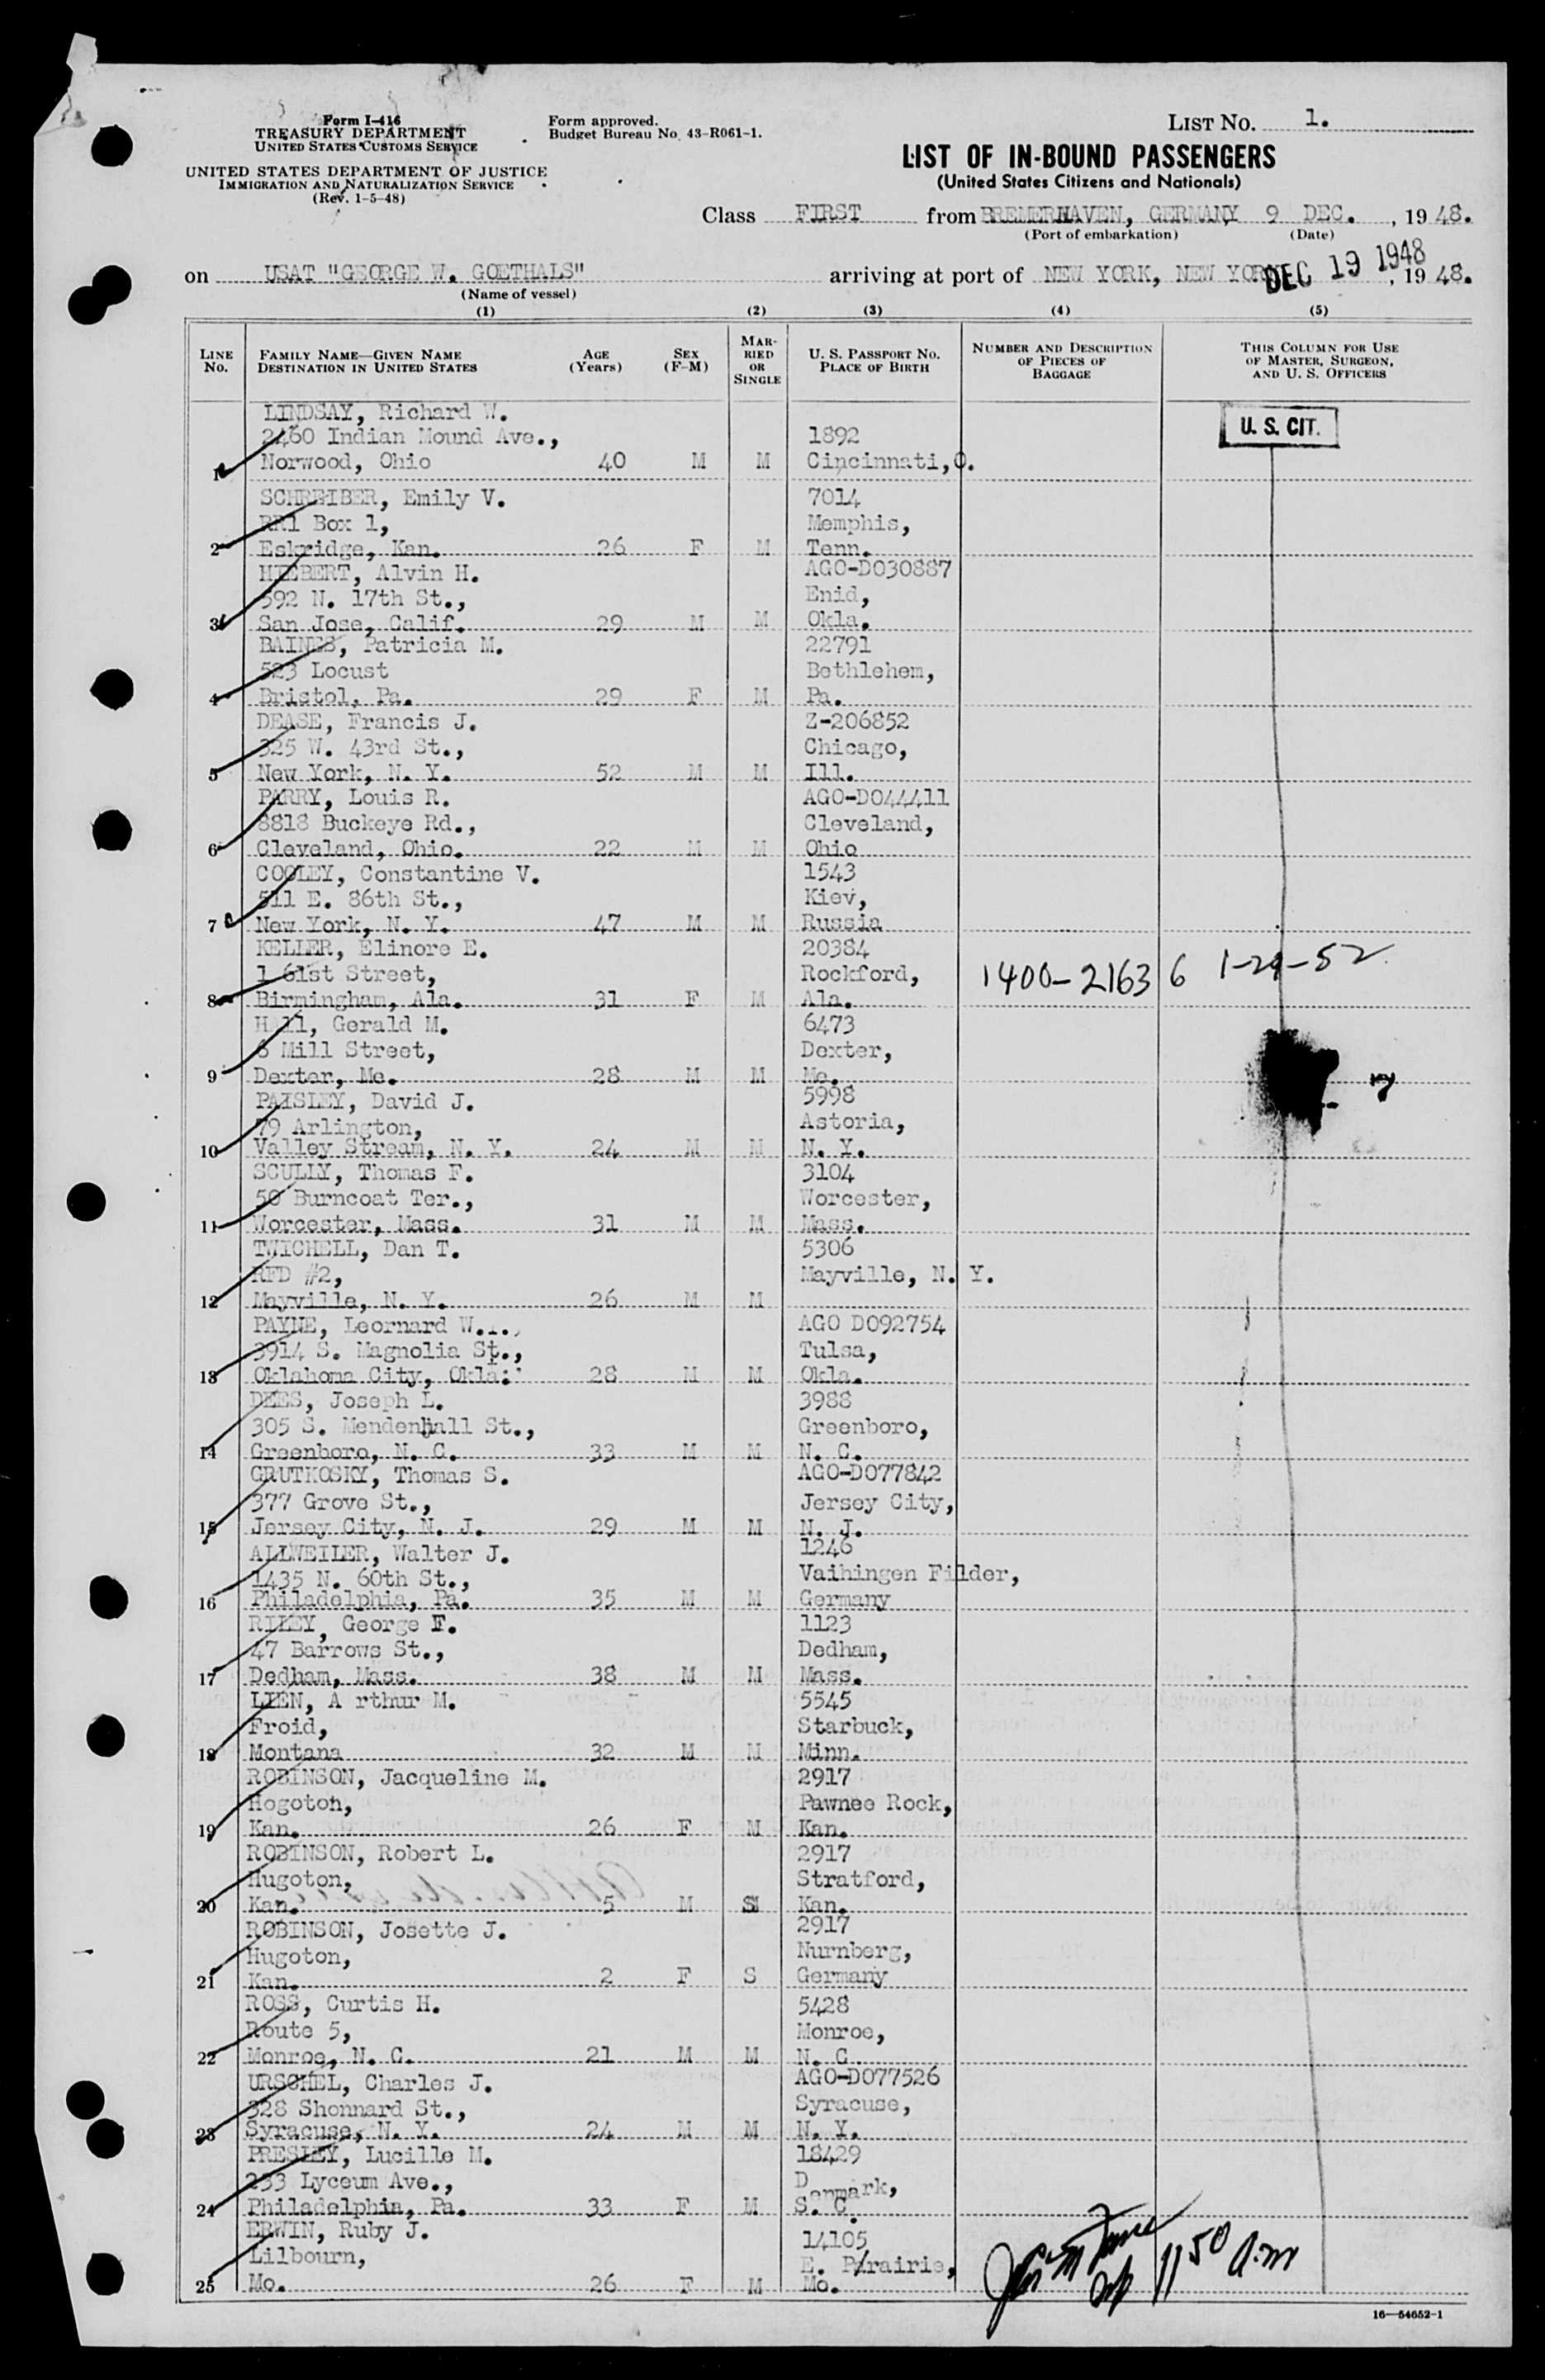 Form I-416
TREASURY DEPARTMENT
UNITED STATES CUSTOMS SERVICE
UNITED STATES DEPARTMENT OF JUSTICE
IMMIGRATION AND NATURALIZATION SERVICE
(Rev. 1-5-48)
Form approved.
Budget Bureau No. 43-R061-1.
LIST No. 1.
LIST OF IN-BOUND PASSENGERS
(United States Citizens and Nationals)
Class FIRST from BREMERHAVEN, GERMANY 9 DEC., 1948.
(Port of embarkation) (Date)
on USAT "GEORGE W. GOETHALS" arriving at port of NEW YORK, NEW YORK DEC 19 1948, 1948.
(Name of vessel)
(1) (2) (3) (4) (5)
LINE No. FAMILY NAME—GIVEN NAME DESTINATION IN UNITED STATES AGE (Years) SEX (F-M) MARRIED OR SINGLE U. S. PASSPORT NO. PLACE OF BIRTH NUMBER AND DESCRIPTION OF PIECES OF BAGGAGE THIS COLUMN FOR USE OF MASTER, SURGEON, AND U. S. OFFICERS
LINDSAY, Richard W.
U. S. CIT.
2460 Indian Mound Ave., 1892
1 Norwood, Ohio 40 M M Cincinnati, O.
SCHREIBER, Emily V. 7014
RR1 Box 1, Memphis,
2 Eskridge, Kan. 26 F M Tenn.
HIEBERT, Alvin H. AGO-D030887
592 N. 17th St., Enid,
3 San Jose, Calif. 29 M M Okla.
BAINES, Patricia M. 22791
523 Locust Bethlehem,
4 Bristol, Pa. 29 F M Pa.
DEASE, Francis J. Z-206852
325 W. 43rd St., Chicago,
5 New York, N. Y. 52 M M Ill.
PARRY, Louis R. AGO-D044411
8818 Buckeye Rd., Cleveland,
6 Cleveland, Ohio. 22 M M Ohio
COOLEY, Constantine V. 1543
511 E. 86th St., Kiev,
7 New York, N. Y. 47 M M Russia
KELLER, Elinore E. 20384
1 61st Street, Rockford, 1400-21636 1-29-52
8 Birmingham, Ala. 31 F M Ala.
HAll, Gerald M. 6473
6 Mill Street, Dexter,
9 Dexter, Me. 28 M M Me.
PAISLEY, David J. 5998
79 Arlington, Astoria,
10 Valley Stream, N. Y. 24 M M N. Y.
SCULLY, Thomas F. 3104
50 Burncoat Ter., Worcester,
11 Worcester, Mass. 31 M M Mass.
TWICHELL, Dan T. 5306
RFD #2, Mayville, N. Y.
12 Mayville, N. Y. 26 M M
PAYNE, Leornard W. AGO D092754
3914 S. Magnolia St., Tulsa,
13 Oklahoma City, Okla. 28 M M Okla.
DEES, Joseph L. 3988
305 S. Mendenhall St., Greenboro,
14 Greenboro, N. C. 33 M M N. C.
GRUTKOSKY, Thomas S. AGO-D077842
377 Grove St., Jersey City,
15 Jersey City, N. J. 29 M M N. J.
ALLWEILER, Walter J. 1246
1435 N. 60th St., Vaihingen Filder,
16 Philadelphia, Pa. 35 M M Germany
RILEY, George F. 1123
47 Barrows St., Dedham,
17 Dedham, Mass. 38 M M Mass.
LIEN, A rthur M. 5545
Froid, Starbuck,
18 Montana 32 M M Minn.
ROBINSON, Jacqueline M. 2917
Hogoton, Pawnee Rock,
19 Kan. 26 F M Kan.
ROBINSON, Robert L. 2917
Hugoton, Stratford,
20 Kan. 5 M S Kan.
ROBINSON, Josette J. 2917
Hugoton, Nurnberg,
21 Kan. 2 F S Germany
ROSS, Curtis H. 5428
Route 5, Monroe,
22 Monroe, N. C. 21 M M N. C.
URSCHEL, Charles J. AGO-D077526
328 Shonnard St., Syracuse,
23 Syracuse, N. Y. 24 M M N. Y.
PRESLEY, Lucille M. 18429
233 Lyceum Ave., Denmark,
24 Philadelphia, Pa. 33 F M S. C.
ERWIN, Ruby J. 14105
Lilbourn, E. Prairie,
25 Mo. 26 F M Mo.
11 50 a.m
16—54652-1